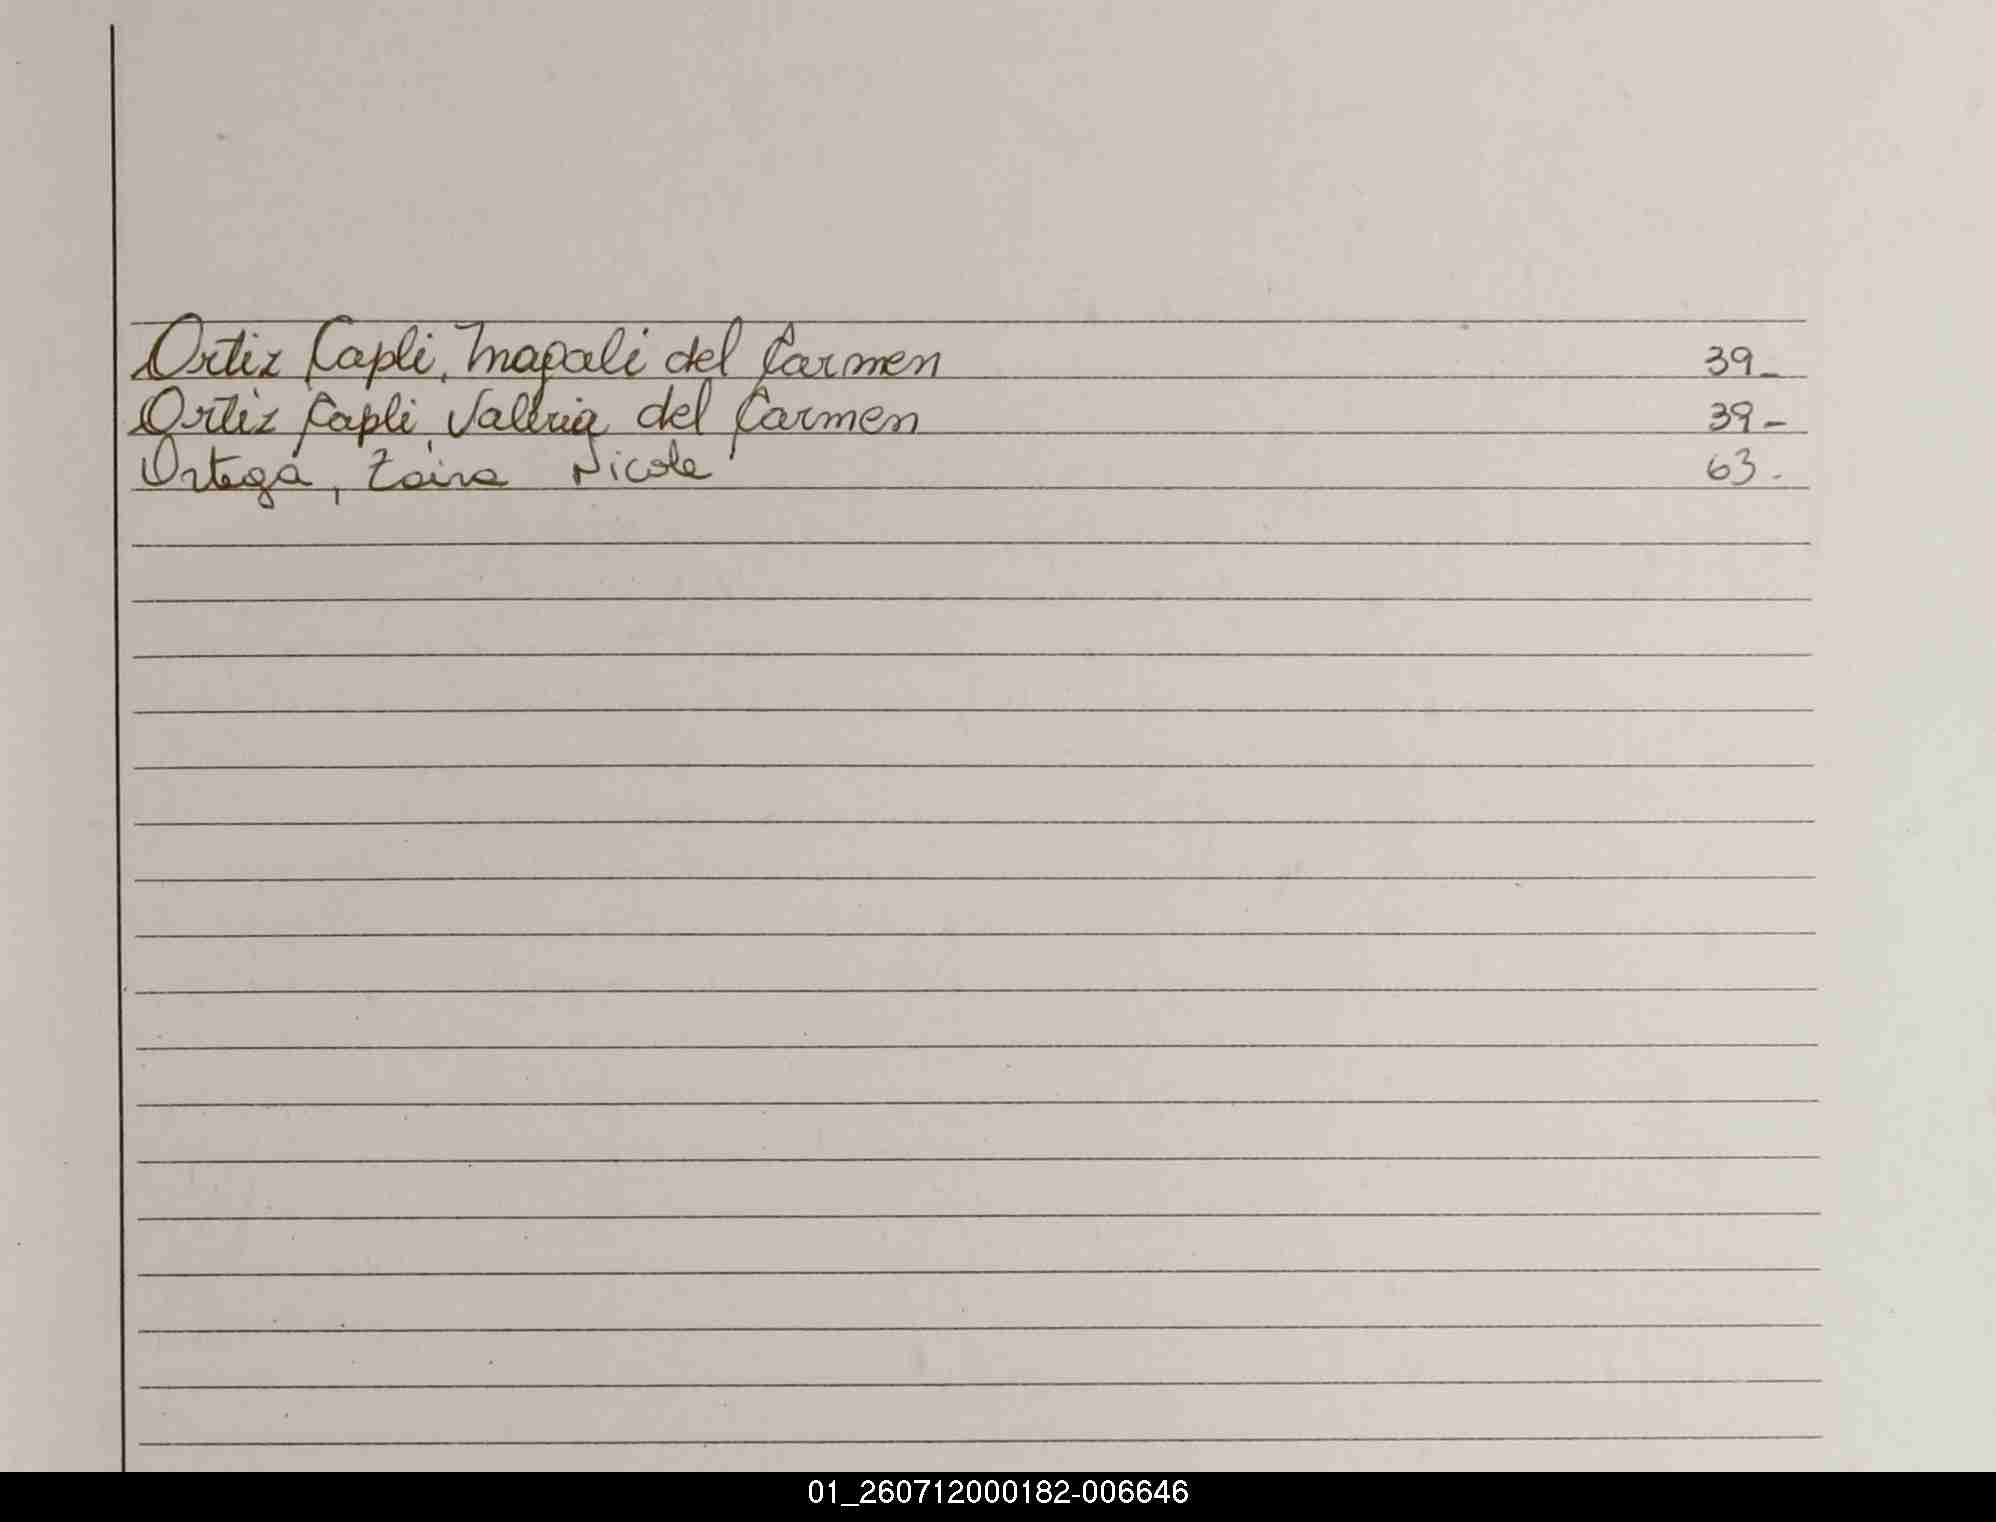 Ortiz Capli, Magali del Carmen 39-
Ortiz Capli, Valeria del Carmen 39-
Ortega, Zaira Nicole 63.-
01_260712000182-006646